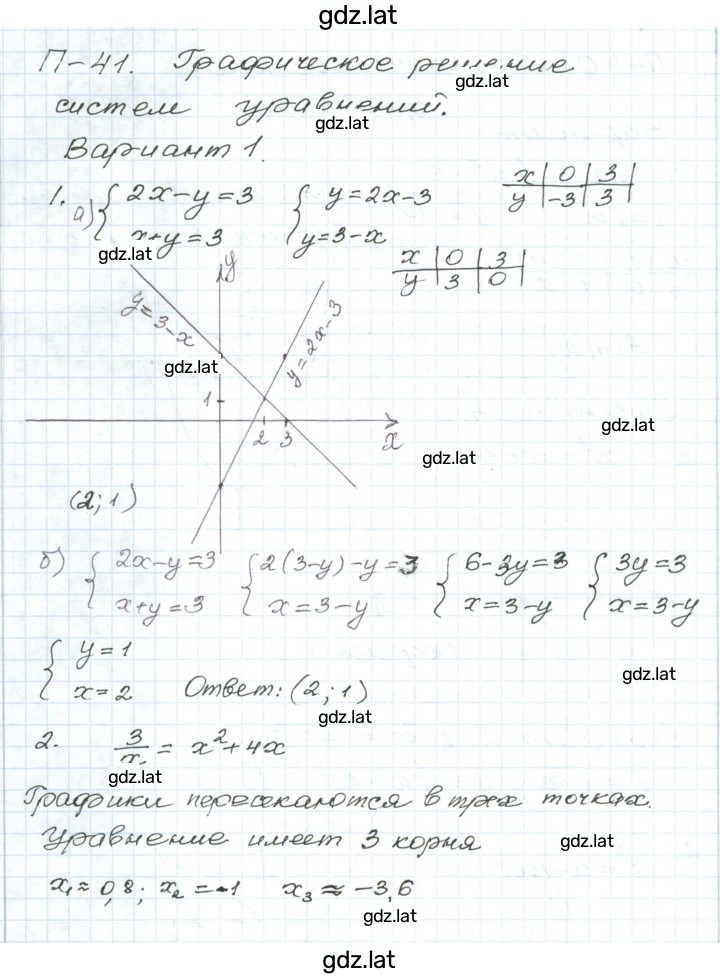 gdz.lat
П-41. Графическое решение
gdz.lat
систем уравнений.
gdz.lat
Вариант 1.
1. а) { 2x-y=3 { y=2x-3
x+y=3 y=3-x
x | 0 | 3
y | -3 | 3
gdz.lat
x | 0 | 3
y | 3 | 0
y
y=3-x
y=2x-3
gdz.lat
1
2 3
x
gdz.lat
gdz.lat
(2; 1)
б) { 2x-y=3 { 2(3-y)-y=3 { 6-3y=3 { 3y=3
x+y=3 x=3-y x=3-y x=3-y
{ y=1
x=2 Ответ: (2; 1)
gdz.lat
gdz.lat
2. 3/x = x²+4x
gdz.lat
Графики пересекаются в трех точках.
Уравнение имеет 3 корня
gdz.lat
x₁≈0,8; x₂=-1 x₃≈-3,6
gdz.lat
gdz.lat